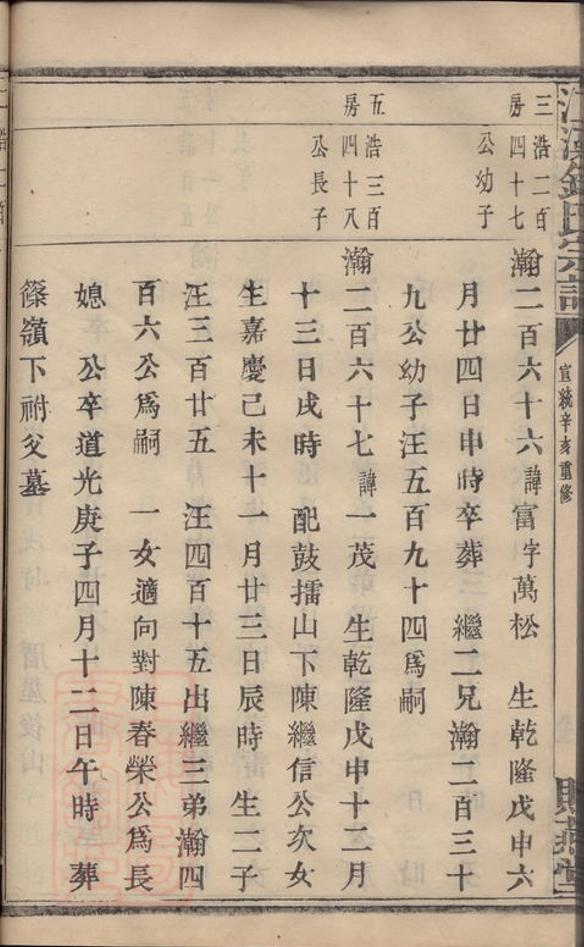 三浩二百
房四十七
公幼子
瀚二百六十六諱富字萬松　生乾隆戊申六
月廿四日申時卒葬　繼二兄瀚二百三十
九公幼子汪五百九十四爲嗣
五浩三百
房四十八
公長子
瀚二百六十七諱一茂　生乾隆戊申十二月
十三日戌時　配鼓擂山下陳繼信公次女
生嘉慶己未十一月廿三日辰時　生二子
汪三百廿五　汪四百十五出繼三弟瀚四
百六公爲嗣　一女適向對陳春榮公爲長
媳　公卒道光庚子四月十二日午時　葬
篠嶺下祔父墓
氏宗譜
宣統辛亥重修